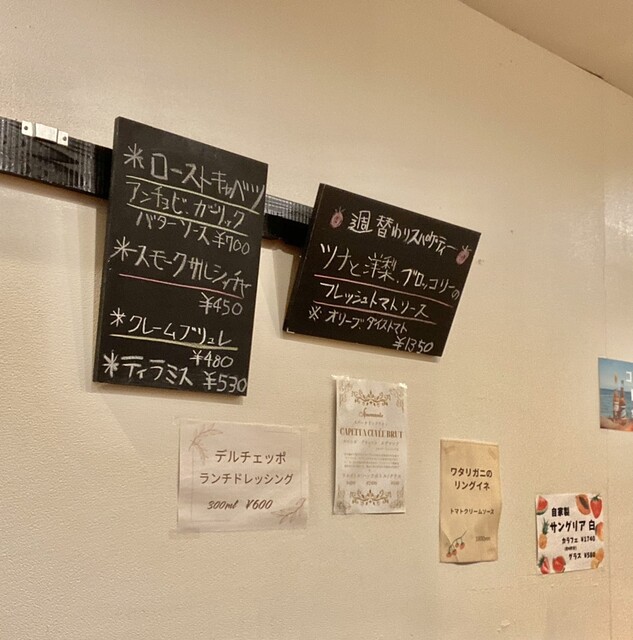 *ローストキャベツ
アンチョビ・ガーリック
バターソース ¥700
*スモークサルシッチャ
¥450
*クレームブリュレ
¥480
*ティラミス ¥530
週替わりスパゲティー
ツナと洋梨、ブロッコリーの
フレッシュトマトソース
※オリーブ、ダイストマト
¥1350
デルチェッポ
ランチドレッシング
300ml ¥600
CAPETTA CUVÉE BRUT
ワタリガニの
リングイネ
トマトクリームソース
自家製
サングリア 白
カラフェ ¥1740
グラス ¥580